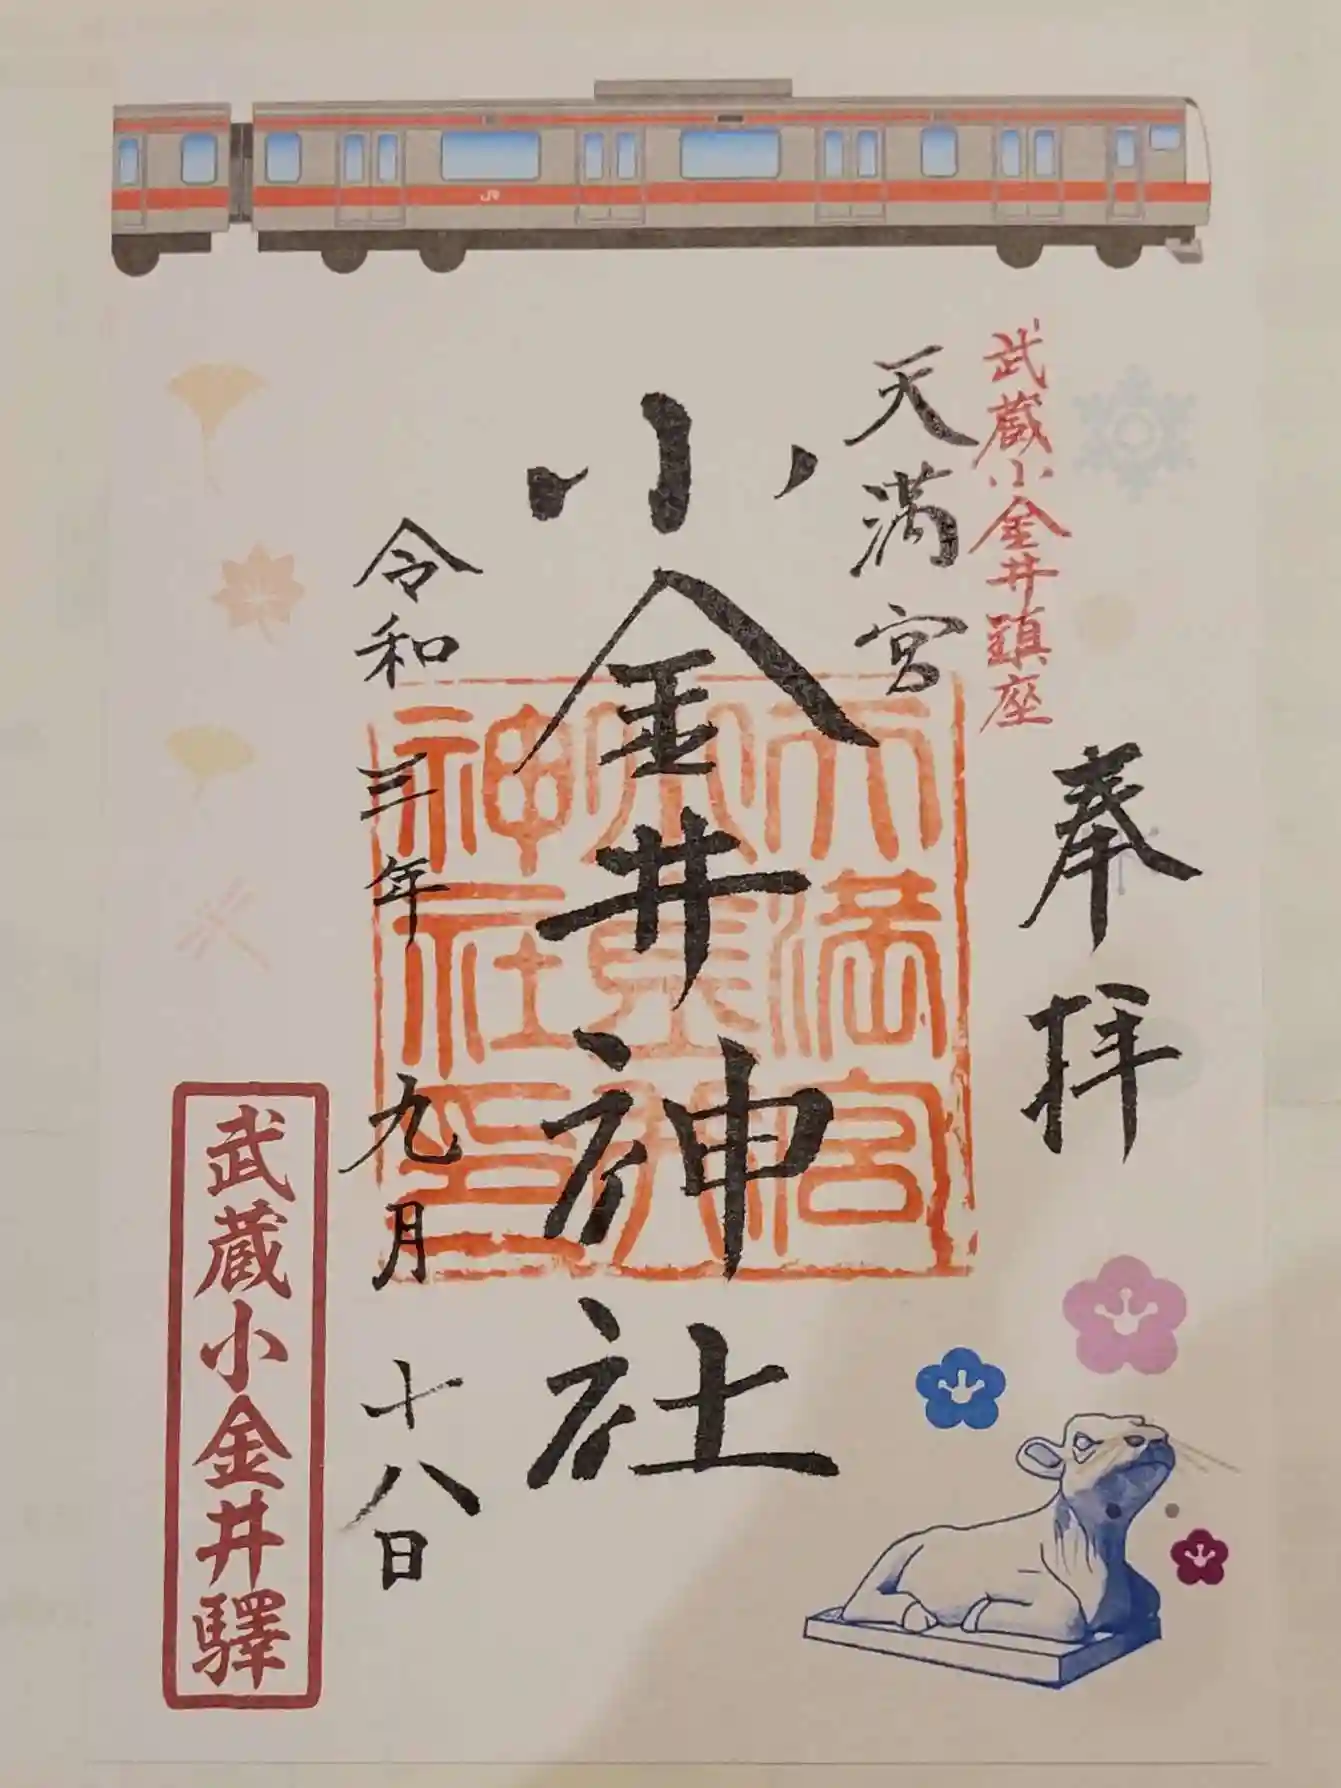 JR
奉拝
武蔵小金井鎮座
天満宮
小金井神社
天満宮
神社印
令和三年九月十八日
武蔵小金井驛